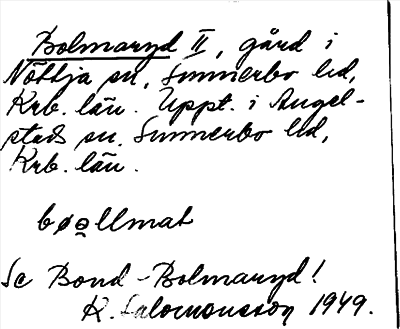 Bolmaryd II, gård i
Nöttja sn, Sunnerbo hd,
Krb. län. Uppt. i Angel-
stads sn. Sunnerbo hd,
Krb. län.
bøo̲llmat
Se Bond-Bolmaryd!
R. Salomonsson 1949.